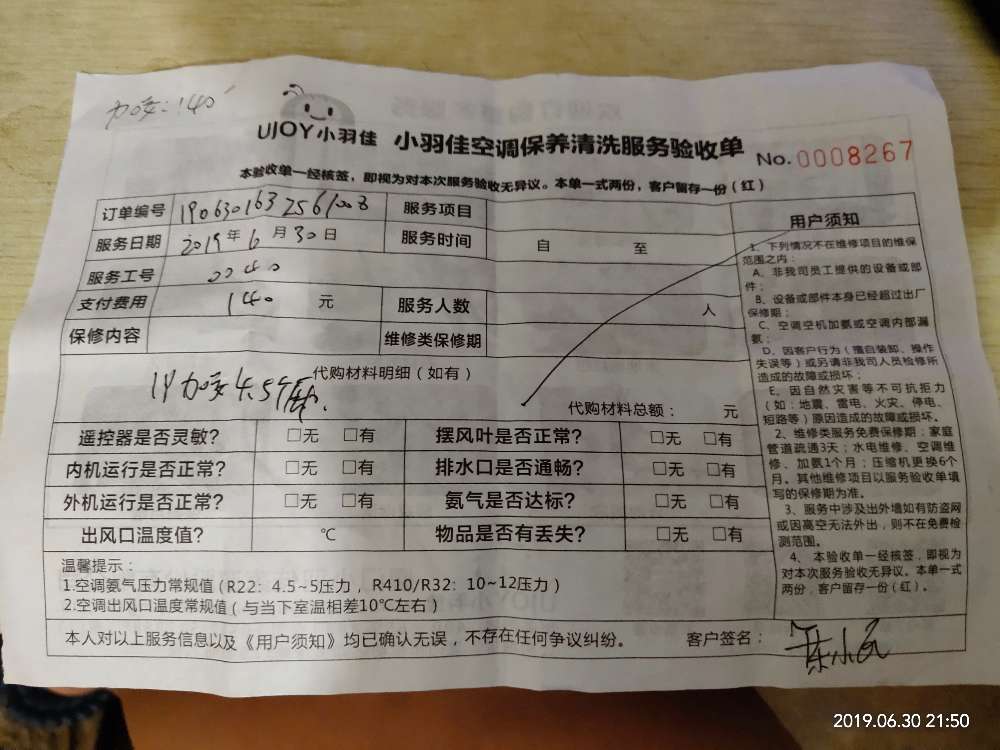 140
UJOY小羽佳 小羽佳空调保养清洗服务验收单 No.0008267
本验收单一经核签，即视为对本次服务验收无异议。本单一式两份，客户留存一份（红）
订单编号 服务项目
服务日期 2019年6月30日 服务时间 自 至
服务工号 2240
支付费用 140 元 服务人数 人
保修内容 维修类保修期
代购材料明细（如有）
4.5
代购材料总额： 元
遥控器是否灵敏? □无 □有 摆风叶是否正常? □无 □有
内机运行是否正常? □无 □有 排水口是否通畅? □无 □有
外机运行是否正常? □无 □有 氨气是否达标? □无 □有
出风口温度值? ℃ 物品是否有丢失? □无 □有
温馨提示：
1.空调氨气压力常规值（R22：4.5~5压力，R410/R32：10~12压力）
2.空调出风口温度常规值（与当下室温相差10℃左右）
本人对以上服务信息以及《用户须知》均已确认无误，不存在任何争议纠纷。 客户签名：
用户须知
1、下列情况不在维修项目的维保
范围之内：
A、非我司员工提供的设备或部
件；
B、设备或部件本身已经超过出厂
保修期；
C、空调空机加氨或空调内部漏
氨；
D、因客户行为（擅自装卸、操作
失误等）或另请非我司人员检修所
造成的故障或损坏；
E、因自然灾害等不可抗拒力
（如：地震、雷电、火灾、停电、
短路等）原因造成的故障或损坏。
2、维修类服务免费保修期：家庭
管道疏通3天；水电维修、空调维
修、加氨1个月；压缩机更换6个
月。其他维修项目以服务验收单填
写的保修期为准。
3、服务中涉及出外墙如有防盗网
或因高空无法外出，则不在免费检
测范围。
4、本验收单一经核签，即视为
对本次服务验收无异议。本单一式
两份，客户留存一份（红）。
2019.06.30 21:50